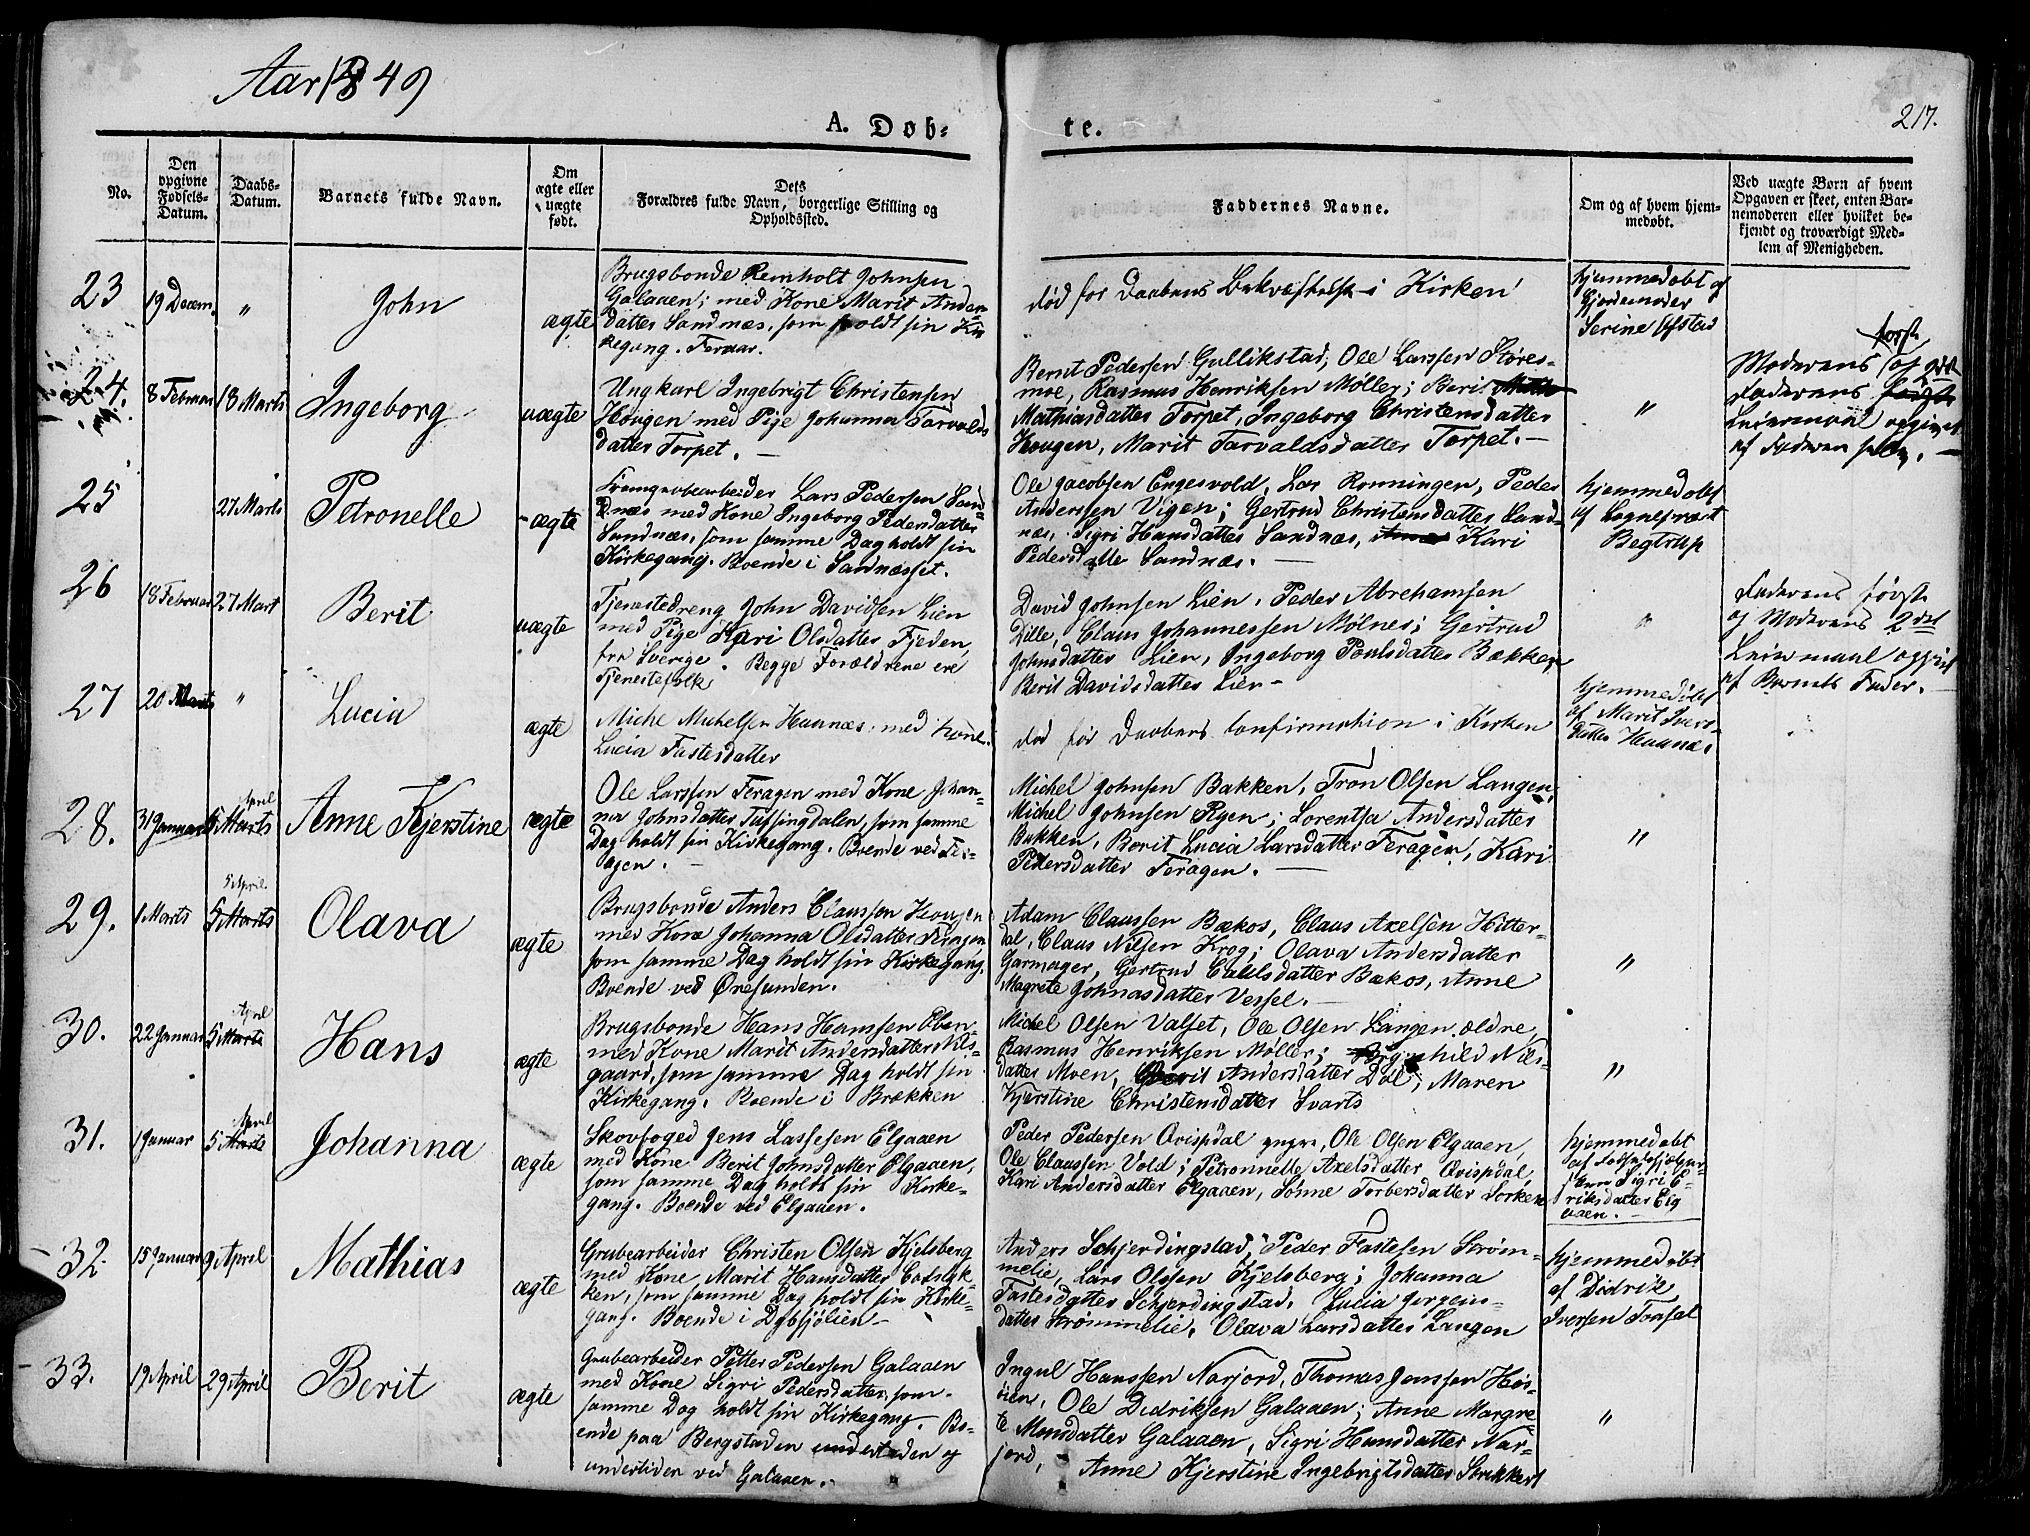 Aar 1849
217.
A. Døb-
te.
No.
Den
opgivne
Fødsels-
Datum.
Daabs-
Datum.
Barnets fulde Navn.
Om
ægte eller
uægte
født.
Dets
Forældres fulde Navn, borgerlige Stilling og
Opholdssted.
Faddernes Navne.
Om og af hvem hjem-
medøbt.
Ved uægte Børn af hvem
Opgaven er skeet, enten Bar-
nemoderen eller hvilket be-
kjendt og troværdigt Med-
lem af Menigheden.
23
19 Decem.
"
John
ægte
Brugsbonde Reinholt Johnsen
Galaaen; med Kone Marit Anders
datter Sandnæs, som holdt sin Kir
kegang.
død før Daabens Bekræftelse i Kirken
hjemmedøbt af
Gjordemoder
Serine
24.
8 Februar
18 Marts
Ingeborg
uægte
Ungkarl Ingebrigt Christensen
Hougen med Pige Johanna Tarvalds
datter Torpet. —
Bernt Pedersen Gullikstad, Ole Larssen Støres-
moe, Rasmus Henriksen Møller; Berit
Mathiasdatter Torpet, Ingeborg Christensdatter
Hougen, Marit Tarvaldsdatter Torpet. —
"
første
Moderens og 2det
Faderens
Leiermaal opgivet
af Faderen selv. —
25
27 Marts
Petronelle
- ægte
Lars Pedersen Sand-
næs med Kone Ingeborg Pedersdatter
Sandnæs, som samme Dag holdt sin
Kirkegang. Boende i Sandnæsset.
Ole Jacobsen Engesvold, Lars Rønningen, Peder
Anderssen Vigen; Gertrud Christensdatter Sand-
næs, Sigri Hansdatter Sandnæs, Kari
Pedersdatter Sandnæs. —
hjemmedøbt
af Sognepræst
Begtrup
26
18 Februar
27 Mart
Berit
uægte
Tjenestedreng John Davidsen Lien
med Pige Kari Olsdatter Fjeden,
fra Sverige. Begge Forældrene ere
Tjenestefolk
David Johnsen Lien, Peder Abrehamsen
Dille, Claus Johannessen Mølnes; Gertrud
Johnsdatter Lien, Ingeborg Poulsdatter Bækken,
Berit Davidsdatter Lien —
"
Faderens første
og Moderens 2det
Leiermaal opgivet
af Barnets Fader. —
27
20 Marts
"
Lucia
ægte
Michel Michelsen Haanæs, med Kone
Lucia Fastesdatter
død før Daabens Confirmation i Kirken
hjemmedøbt
af Marit Ivers-
datter Haanæs
28.
31 Januar
April
5 Marts
Anne Kjerstine
ægte
Ole Larssen Feragen med Kone Johan-
na Johnsdatter Tufsingdalen, som samme
Dag holdt sin Kirkegang. Boende ved Fer-
agen. —
Michel Johnsen Bakken, Tron Olsen Langen,
Michel Johnsen Ryen; Lorentsa Andersdatter
Bakken, Berit Lucia Larsdatter Feragen, Kari
Pedersdatter Feragen. —
"
29.
1 Marts
5 April
5 Marts
Olava
ægte
Brugsbonde Anders Claussen Hougen
med Kone Johanna Olsdatter Feragen
som samme Dag holdt sin Kirkegang.
Boende ved Øresunden.
Adam Claussen Bækos, Claus Axelsen Hitter-
dal, Claus Nilsen Krog; Olava Andersdatter
Garmager, Gertrud Eskilsdatter Bækos, Anne
Magrete Johnasdatter Vessel. —
"
30.
22 Januar
April
5 Marts
Hans
ægte
Brugsbonde Hans Hanssen Eben-
med Kone Marit Andersdatter Nils-
gaard, som samme Dag holdt sin
Kirkegang. Boende i Brækken
Michel Olsen Valset, Ole Olsen Langen ældre,
Rasmus Henriksen Møller; Børgehild Nils-
datter Moen, Berit Andersdatter Døl; Maren
Kjerstine Christensdatter Svarts
"
31.
1 Januar
April
5 Marts
Johanna
ægte
Skovfoged Jens Lassesen Elgaaen
med Kone Berit Johnsdatter Elgaaen,
som samme Dag holdt sin Kirke-
gang. Boende ved Elgaaen.
Peder Pedersen Qvispdal yngre, Ole Olsen Elgaaen,
Ole Claussen Vold; Petronnelle Axelsdatter Qvispdal,
Kari Andersdatter Elgaaen, Sønne Torbersdatter Sorken
hjemmedøbt
Sigri E-
riksdatter Elg
aaen. —
32.
15 Januar
9 April
Mathias
ægte
Grubearbeider Christen Olsen Kjelsberg
med Kone Marit Hansdatter
ken, som samme Dag holdt sin Kirke-
gang. Boende i
Anders Schjerdingstad, Peder Fastesen Strøm-
melie, Lars Olssen Kjelsberg; Johanna
Fastesdatter Schjerdingstad, Lucia Jørgens-
datter Strømmelie, Olava Larsdatter Langen
hjemmedøbt
af Didrik
Iversen
33.
19 April
29 April
Berit
ægte
Grubearbeider Petter Pedersen Galaaen
med Kone Sigri Pedersdatter, som
samme Dag holdt sin Kirkegang. Bo-
ende paa Bergstaden undertiden og
undertiden ved Galaaen.
Ingul Hanssen Narjord, Thomas Jenssen Høs-
øien, Ole Didriksen Galaaen; Anne Margre
te Monsdatter Galaaen, Sigri Hansdatter Nar-
jord,
Anne Kjerstine Ingebrigtsdatter Strikkert
"